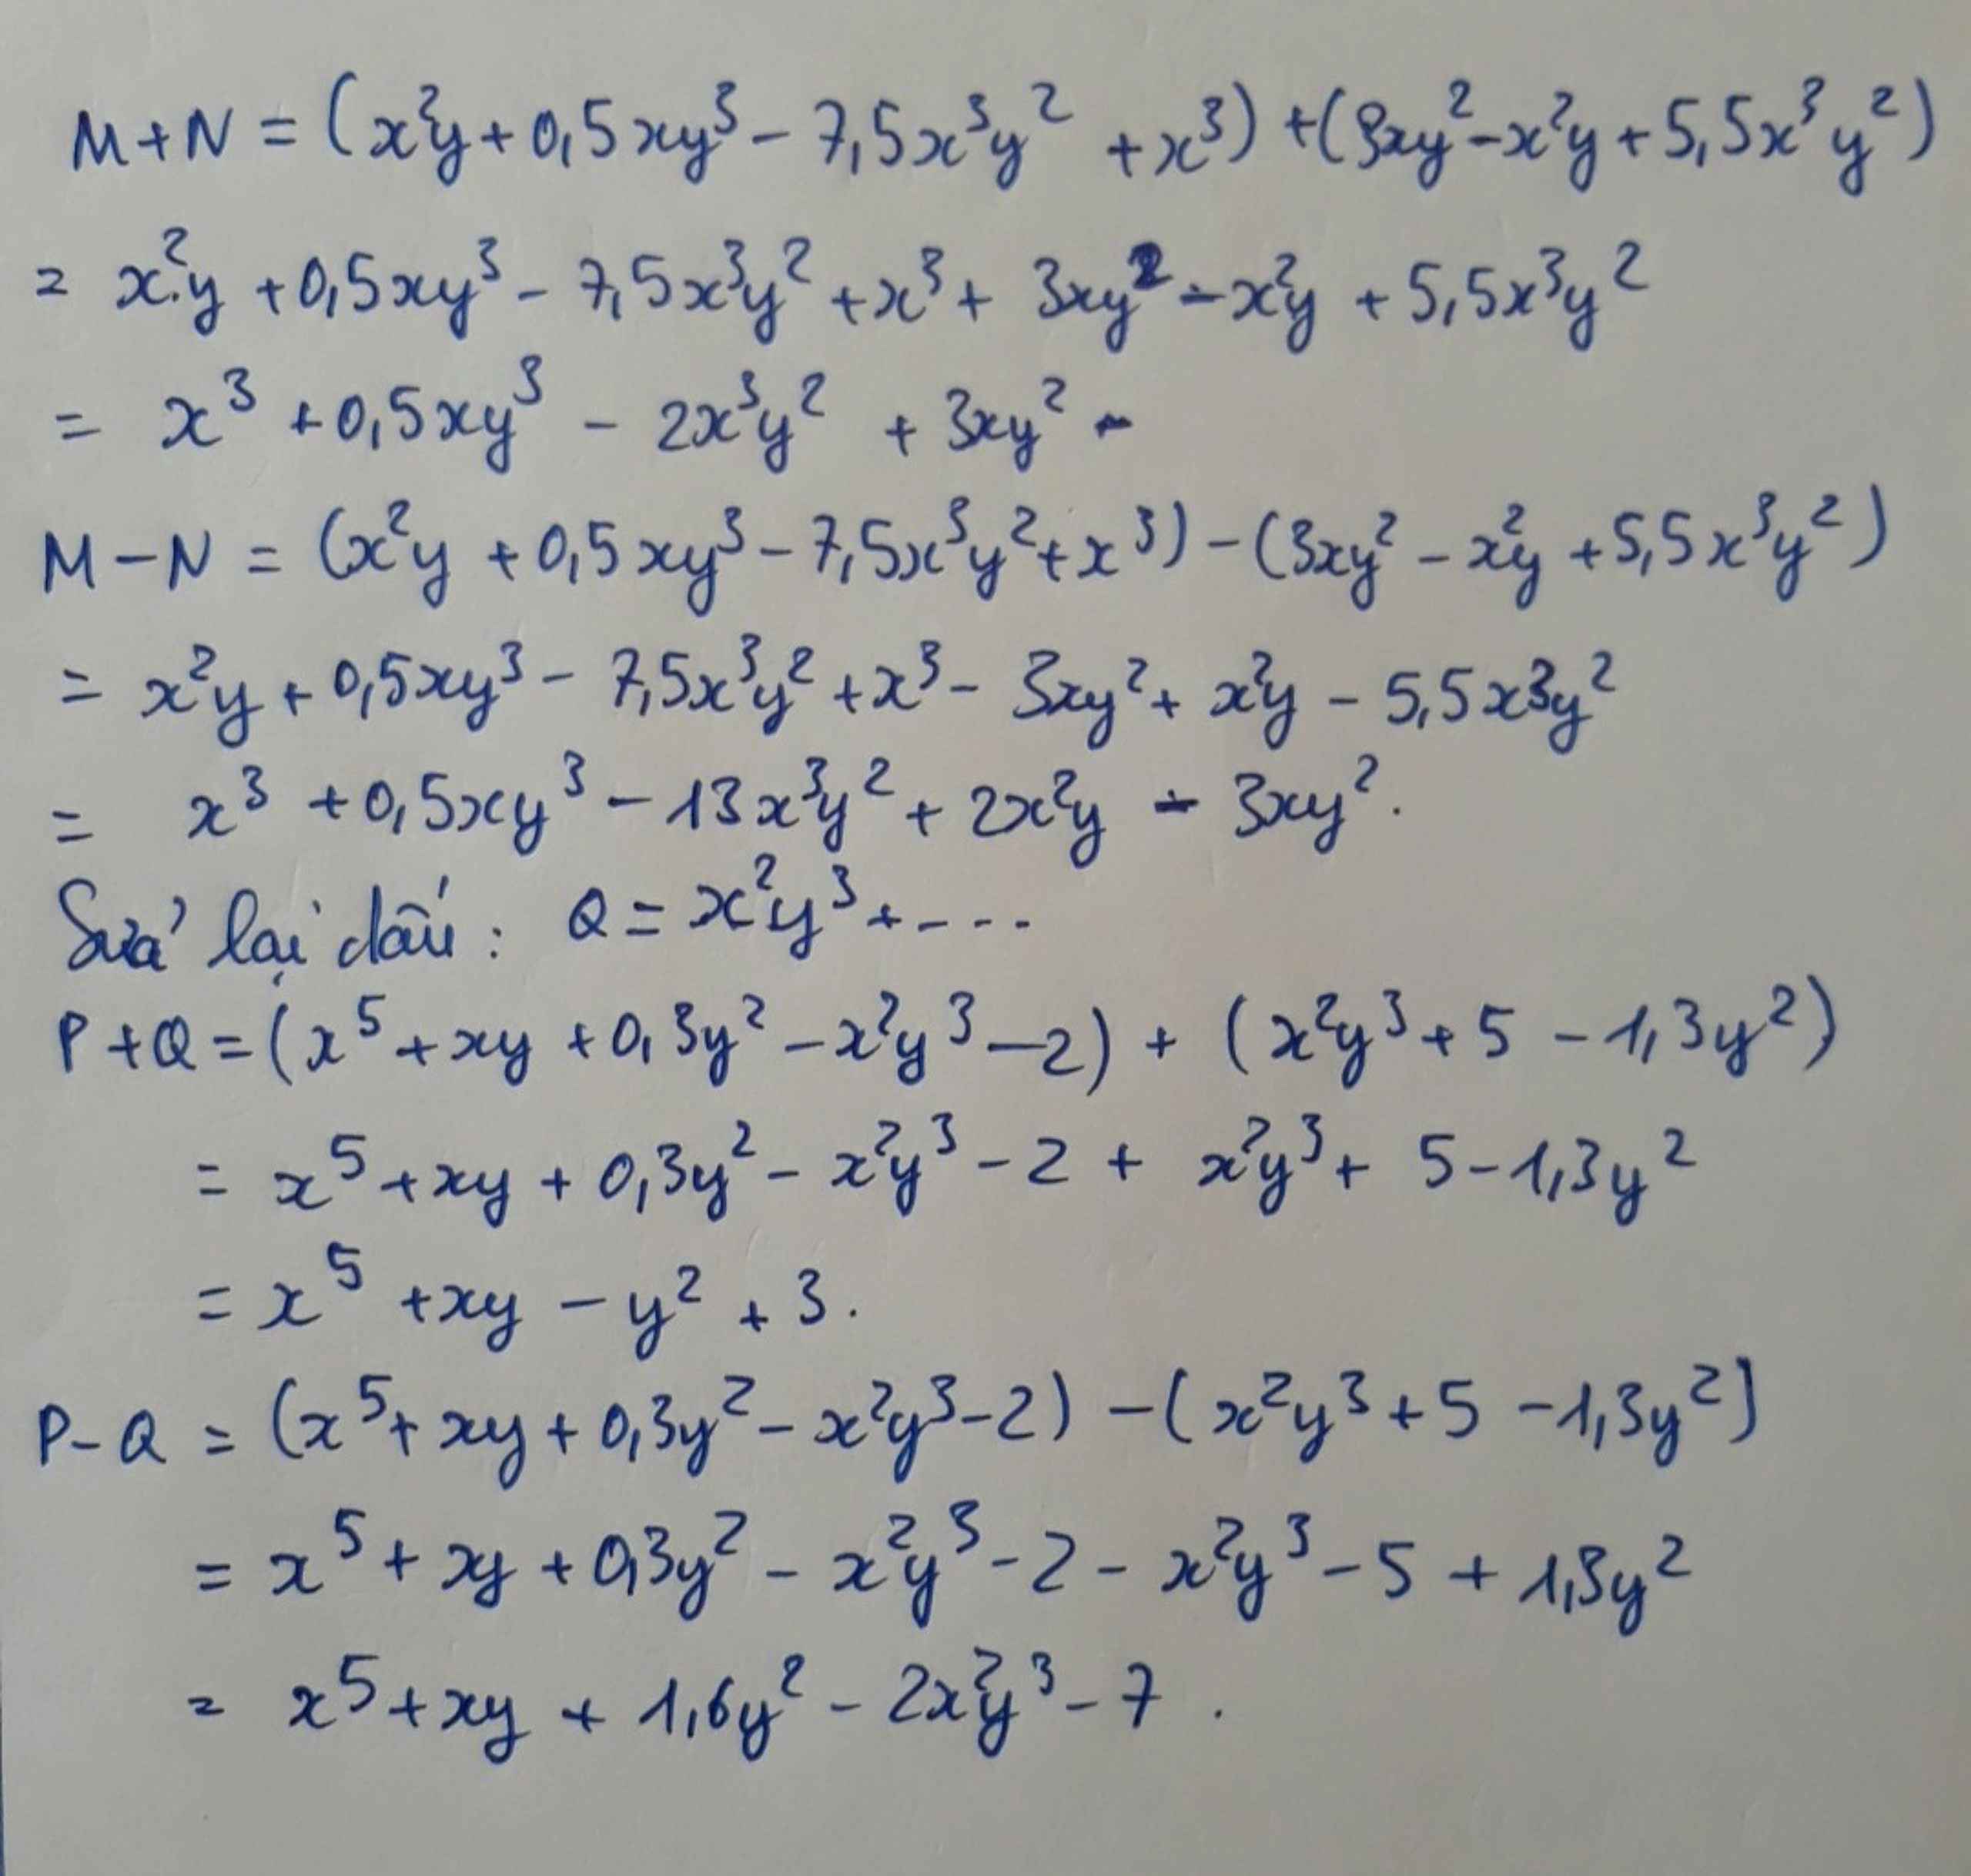 M+N = (x²y + 0,5xy³ - 7,5x³y² + x³) + (3xy² - x²y + 5,5x³y²)
= x²y + 0,5xy³ - 7,5x³y² + x³ + 3xy² - x²y + 5,5x³y²
= x³ + 0,5xy³ - 2x³y² + 3xy² -
M - N = (x²y + 0,5xy³ - 7,5x³y² + x³) - (3xy² - x²y + 5,5x³y²)
= x²y + 0,5xy³ - 7,5x³y² + x³ - 3xy² + x²y - 5,5x³y²
= x³ + 0,5xy³ - 13x³y² + 2x²y - 3xy².
Sửa lại dấu : Q = x²y³ + - - -
P + Q = (x⁵ + xy + 0,3y² - x²y³ - 2) + (x²y³ + 5 - 1,3y²)
= x⁵ + xy + 0,3y² - x²y³ - 2 + x²y³ + 5 - 1,3y²
= x⁵ + xy - y² + 3.
P - Q = (x⁵ + xy + 0,3y² - x²y³ - 2) - (x²y³ + 5 - 1,3y²)
= x⁵ + xy + 0,3y² - x²y³ - 2 - x²y³ - 5 + 1,3y²
= x⁵ + xy + 1,6y² - 2x²y³ - 7 .